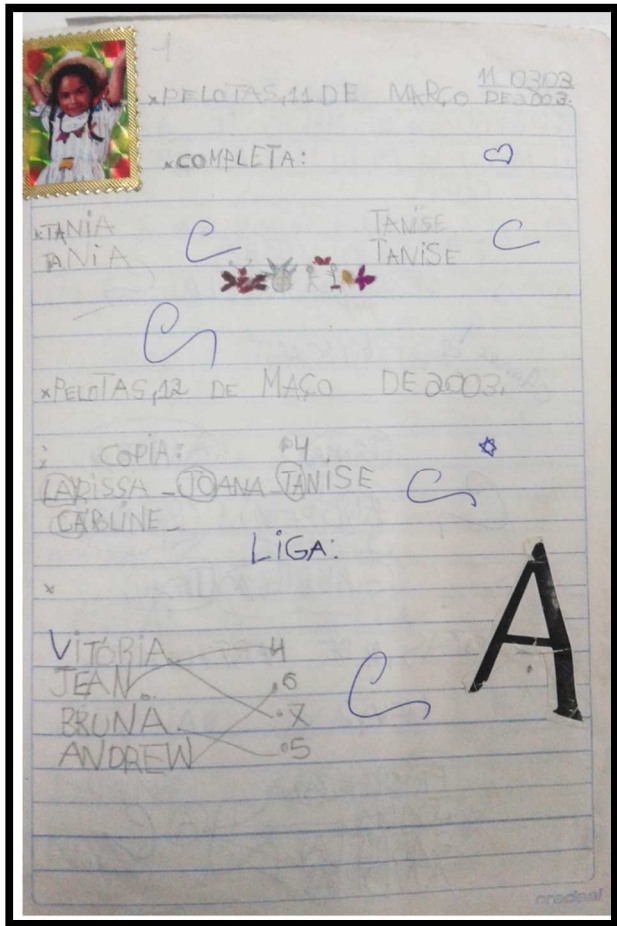 11 03 03
x PELOTAS, 11 DE MARÇO DE 2003.
x COMPLETA:
x TANIA TANISE
TANIA TANISE
x PELOTAS, 12 DE MAÇO DE 2003.
COPIA: 4
LARISSA - JOANA - TANISE
CARLINE -
LIGA:
x
A
VITÓRIA 4
JEAN 6
BRUNA 7
ANDREW 5
credeal